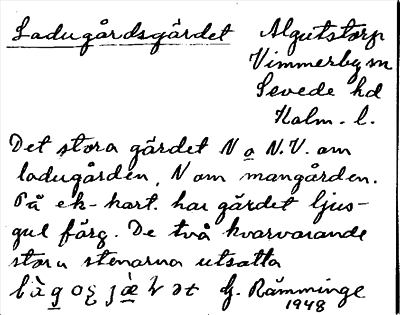 Ladugårdsgärdet Algutstorp
Vimmerby sn
Sevede hd
Kalm. l.
Det stora gärdet N o N.V. om
ladugården, N om mangården.
På ek-kart. har gärdet ljus-
gul färg. De två kvarvarande
stora stenarna utsatta
G. Rämminge
1948